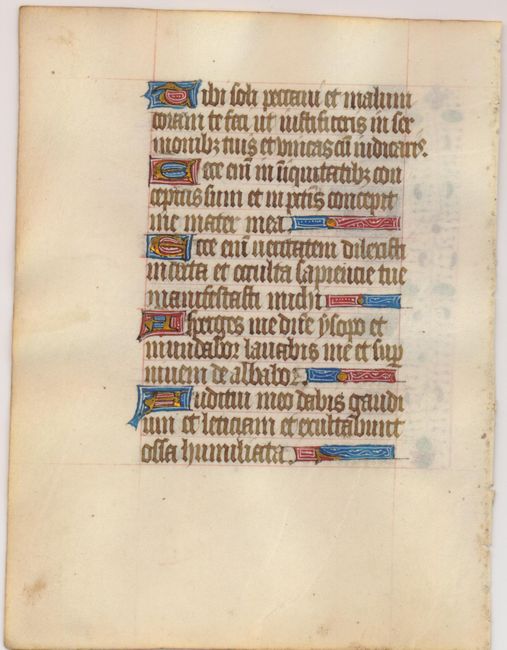 Tibi soli peccaui et malum
coram te feci ut iustificeris in ser
monibꝫ tuis et vincas cū iudicaris.
Ecce eni͂ in iniquitatibꝫ con
ceptus sum et in pctīs concepit
me mater mea
Ecce eni͂ ueritatem dilexisti
incerta et occulta sapiencie tue
manifestasti michi
Asperges me dn̄e ysopo et
mundabor lauabis me et sup
niuem dealbabor
Auditui meo dabis gaudi
um et leticiam et exultabunt
ossa humiliata